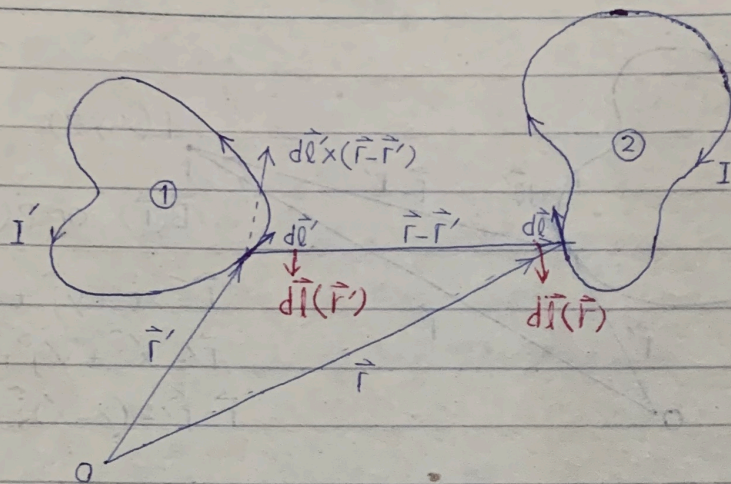 ②
dl⃗'×(r⃗-r⃗')
①
I
I'
dl⃗' r⃗-r⃗' dl⃗
dl⃗(r⃗') dl⃗(r⃗)
r⃗'
r⃗
O